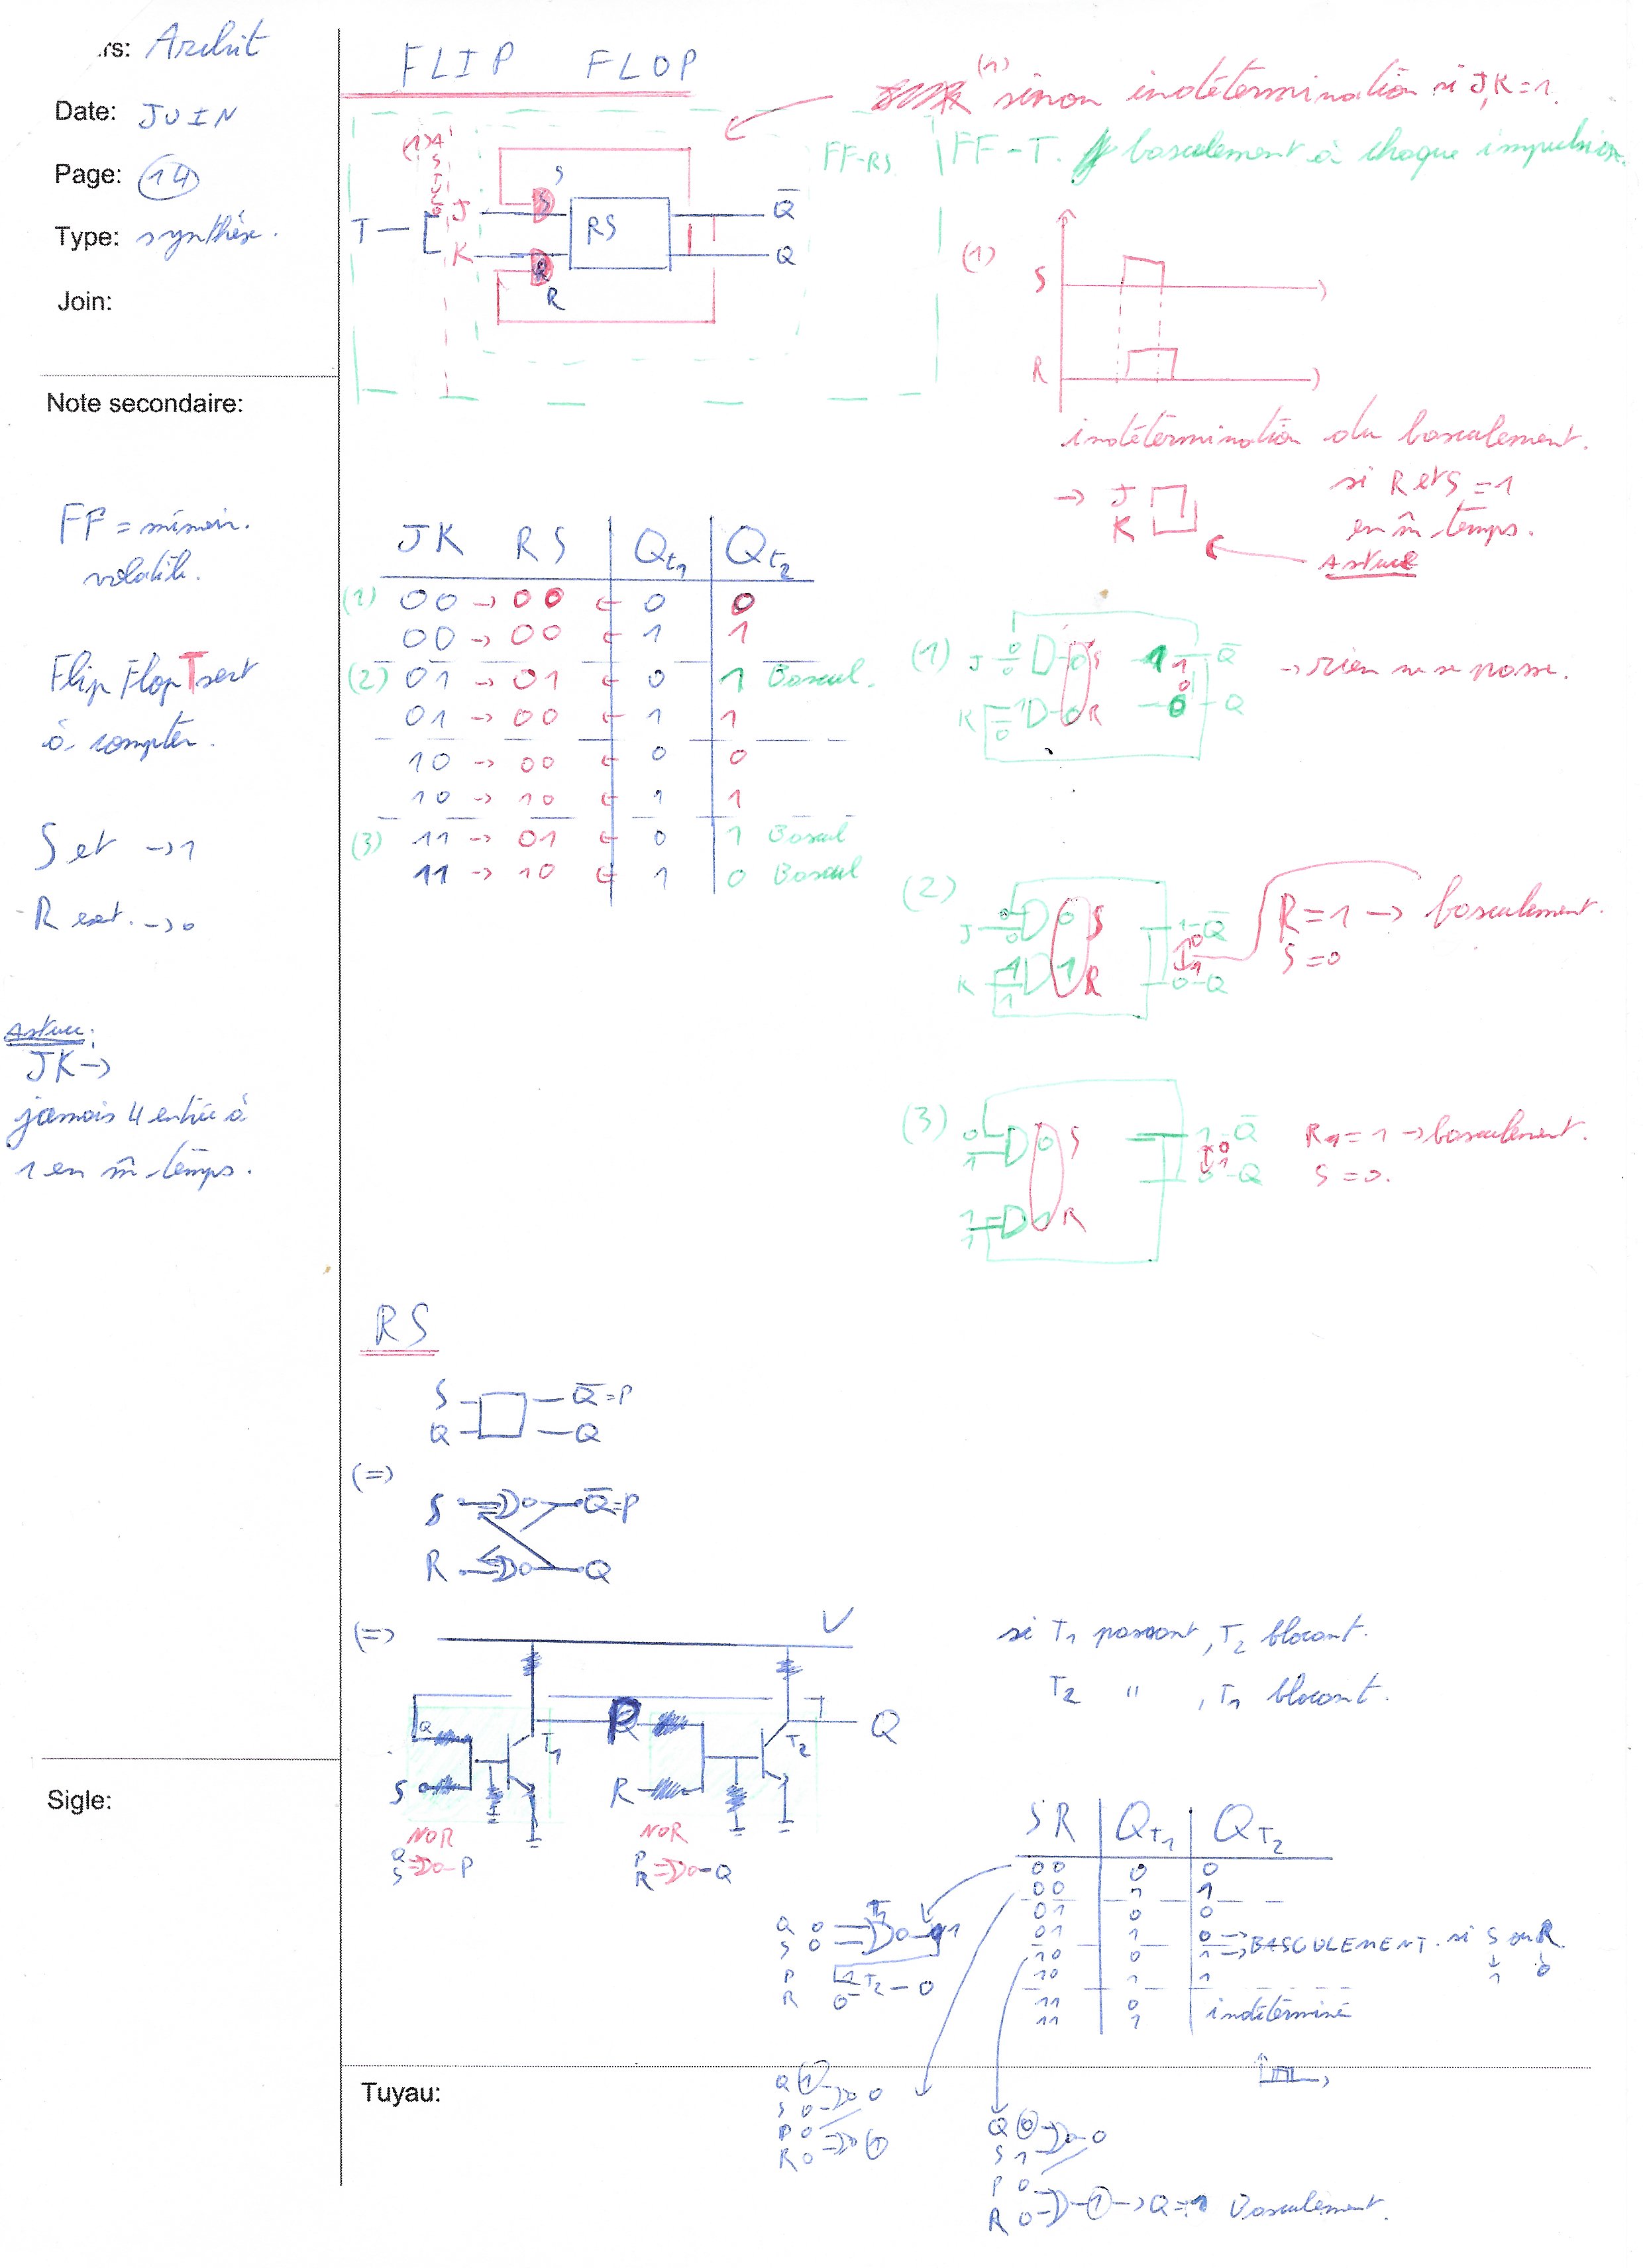 .rs: Archit
Date: JUIN
Page: 14
Type: synthèse.
Join:
Note secondaire:
FF = mémoir.
volatile.
Flip Flop T sert
à compter.
Set → 1
Reset. → 0
Astuce:
JK →
jamais 4 entrée à
1 en m̂ temps.
Sigle:
FLIP FLOP
(1) sinon indétermination si J,K=1.
FF-RS FF-T. basculement à chaque impulsion.
(1) ASTUCE
S
J
T RS Q̅
K Q
R
(1)
S
R
indétermination du basculement.
si R et S = 1
en m̂ temps.
→ J
K
Astuce
JK RS Qt1 Qt2
(1) 00 → 00 ← 0 0
00 → 00 ← 1 1
(2) 01 → 01 ← 0 1 Bascul.
01 → 00 ← 1 1
10 → 00 ← 0 0
10 → 10 ← 1 1
(3) 11 → 01 ← 0 1 Bascul
11 → 10 ← 1 0 Bascul
(1) J 0 0 S 1 1 Q̅ → rien ne se passe.
K 0 1 0 R 0 0 Q
(2) J 0 0 0 S 1 Q̅ R = 1 → basculement.
K 1 1 1 R 0 Q S = 0
(3) 0 1 0 S 1 Q̅ R = 1 → basculement.
1 1 1 R 0 Q S = 0.
RS
S Q̅=P
Q Q
(=)
S Q̅=P
R Q
(=) V
si T1 passant, T2 blocant.
T2 " , T1 blocant.
Q T1 P T2 Q
S R
NOR NOR
Q P
S P R Q
SR QT1 QT2
00 0 0
00 1 1
01 0 0
01 1 0 => BASCULEMENT. si S ou R
10 0 1 => 1 0
10 1 1
11 0 indéterminé
11 1
Q 0 T1 1
S 0
P 1 T2 – 0
R 0
Tuyau:
Q 1 0
S 0
P 0
R 0 1
Q 0 0
S 1
P 0
R 0 1 → Q = 1 Basculement.